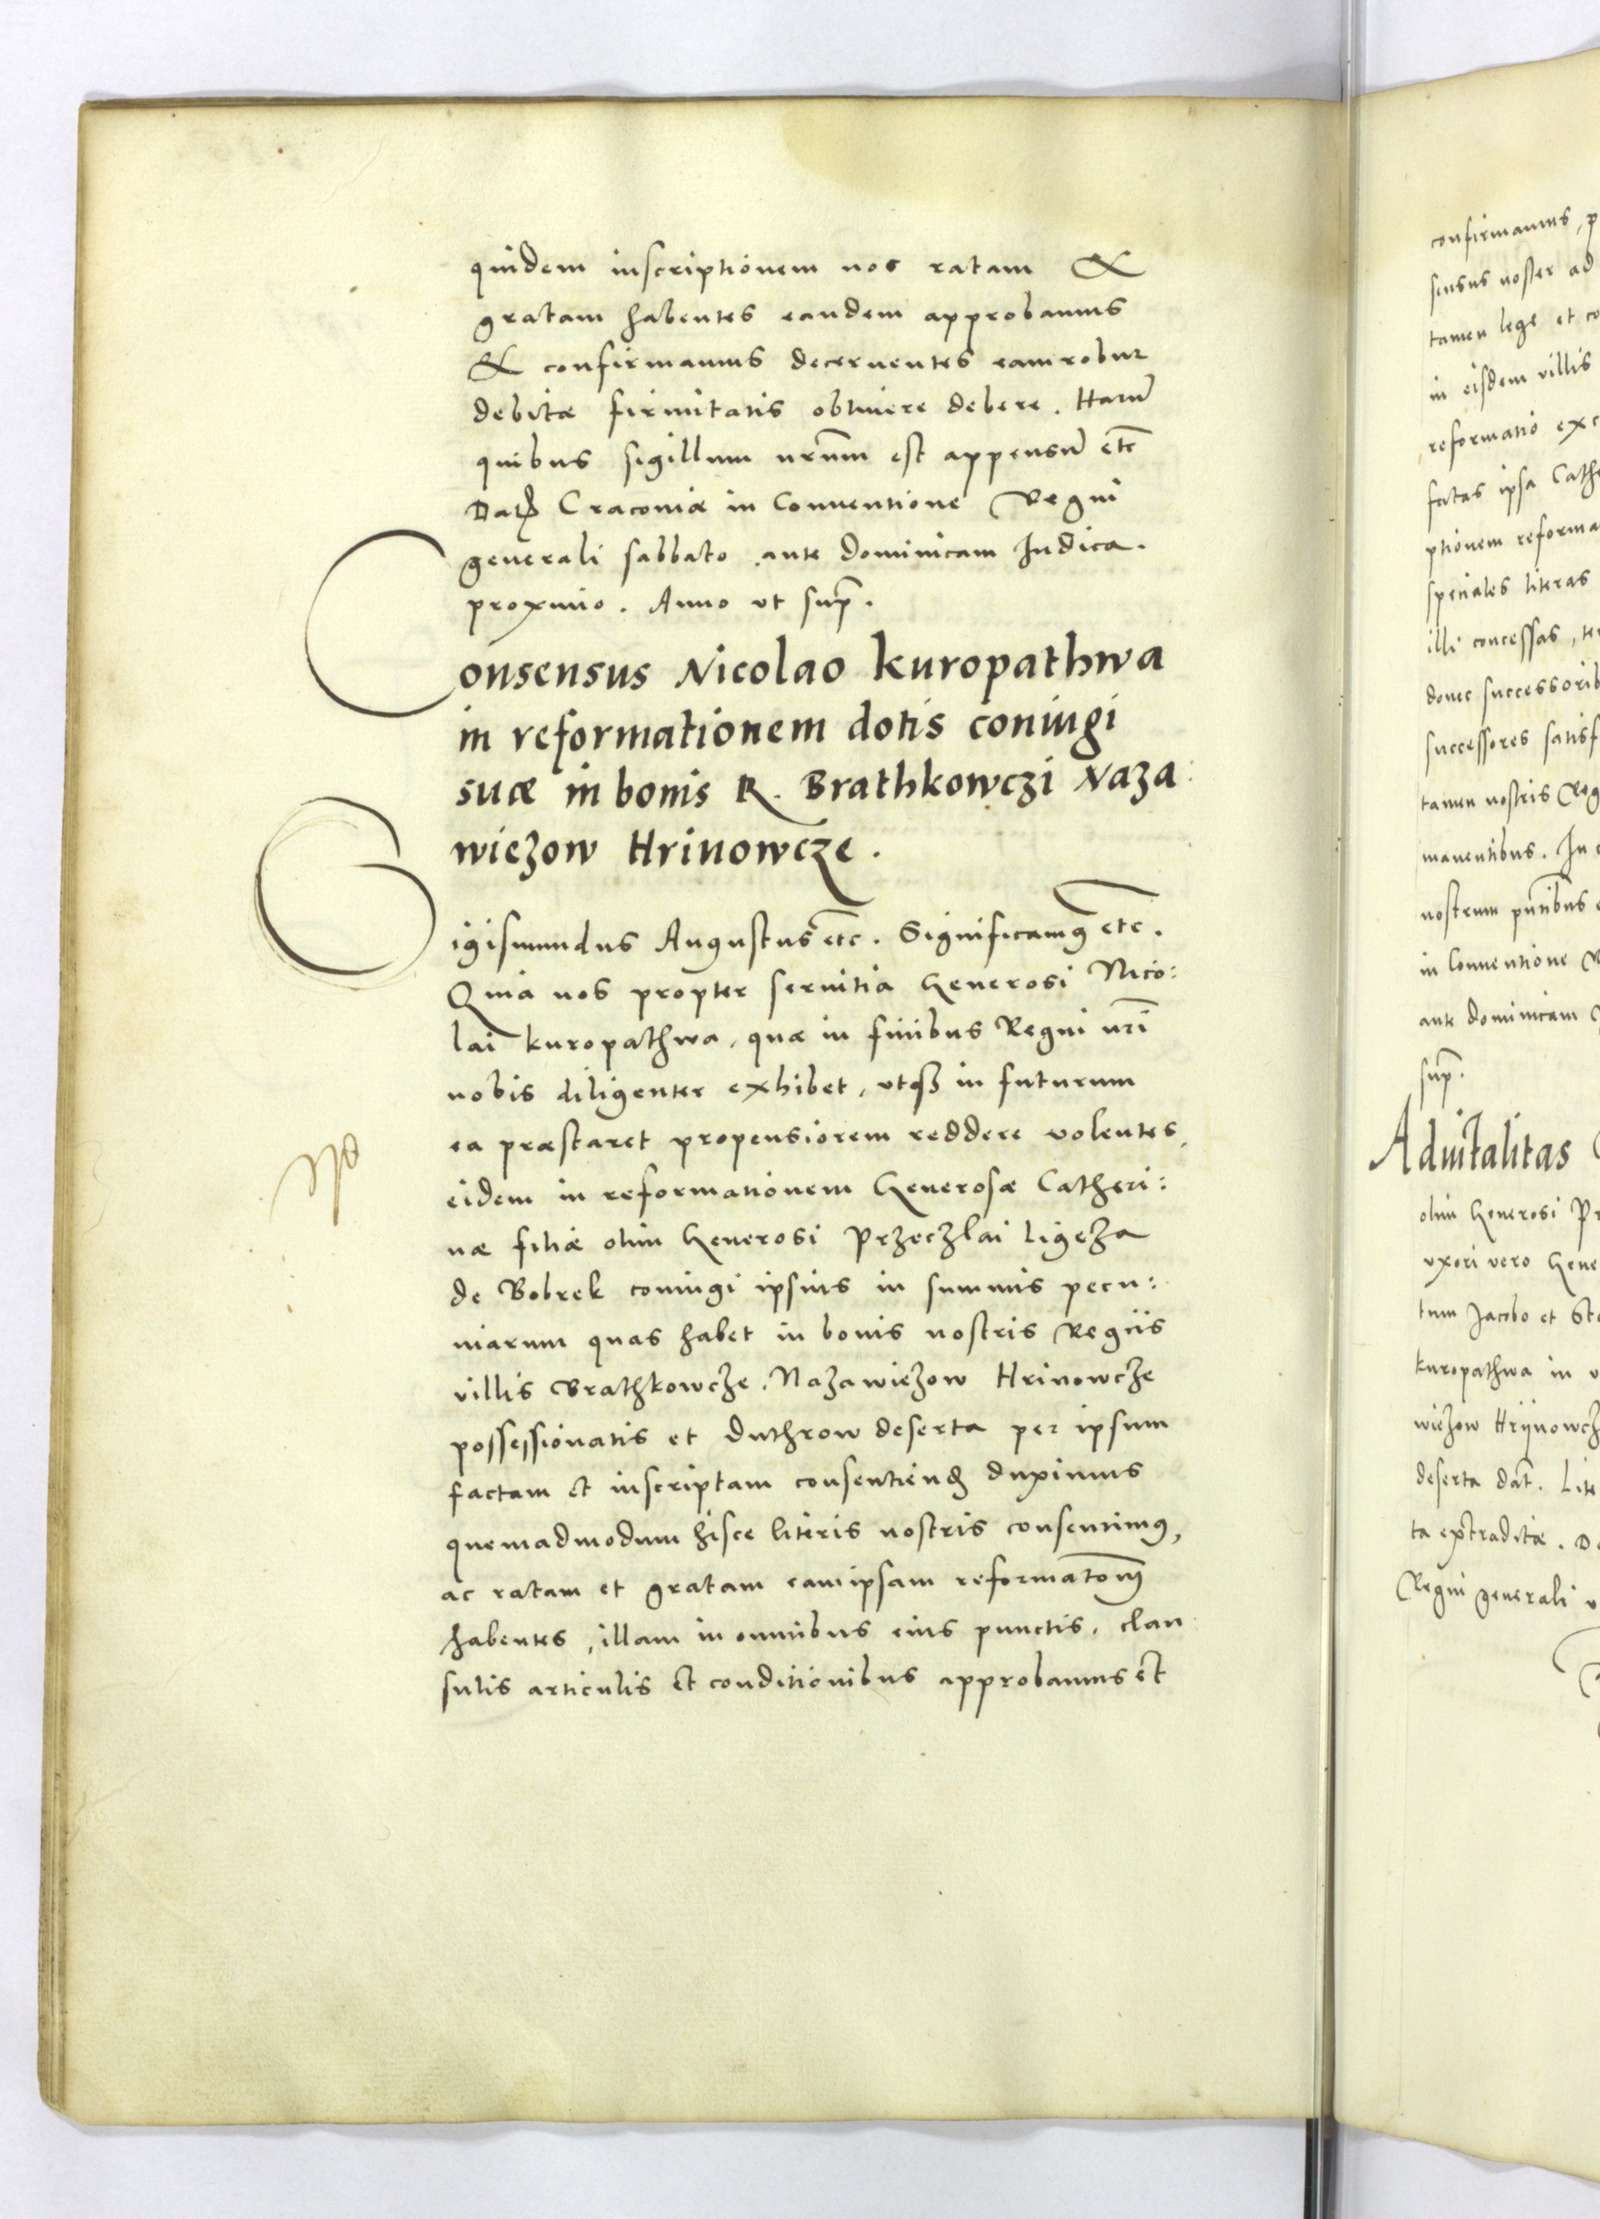 quidem inscriptionem nos ratam &
gratam habentes eandem approbamus
& confirmamus decernentes eam robur
debitæ firmitatis obtinere debere. Harū
quibus sigillum nrūm est appensū etc̄
Datꝭ Cracoviæ in Conventione Regni
generali sabbato ante dominicam Judica.
proximo. Anno ut sup̄.
Consensus Nicolao Kuropathwa
in reformationem dotis coniugi
suæ in bonis R. Brathkowczi Naza:
wiezow Hrinowcze.
Sigismundus Augustus etc. Significamꝰ etc.
Quia nos propter servitia Generosi Nico:
lai Kuropathwa, quæ in finibus Regni nrī
nobis diligenter exhibet, utqꝫ in futurum
ea præstaret propensiorem reddere volentes,
eidem in reformationem Generosæ Catheri:
næ filiæ olim Generosi Przeczlai Ligeza
de Bobrek coniugi ipsius in summis pecu:
niarum quas habet in bonis nostris Regiis
villis Brathkowcze. Nazawiezow Hrinowcze
possessionatis et Duthrow deserta per ipsum
factam et inscriptam consentiendꝭ duximus
quemadmodum hisce literis nostris consentimꝰ,
ac ratam et gratam eamipsam reformatōnē
habentes, illam in omnibus eius punctis, clau
sulis articulis et conditionibus approbamus et
confirmamus, p
sensus noster ad
tamen lege et co
in eisdem villis
reformatio exc
fatas ipsa Cathe
ptionem reforma
speciales literas
illi concessas, te
donec successorib
successores satisf
tamen nostris Reg
manentibus. In c
nostrum pn̄tibus e
in Conventione R
ante dominicam J
sup̄.
Advitalitas
olim Generosi Pr
uxori vero Gene
tum Jacobo et Sta
Kuropathwa in v
wiezow Hrijnowcz
deserta dat̄. Lite
ta extraditæ. Da
Regni generali u